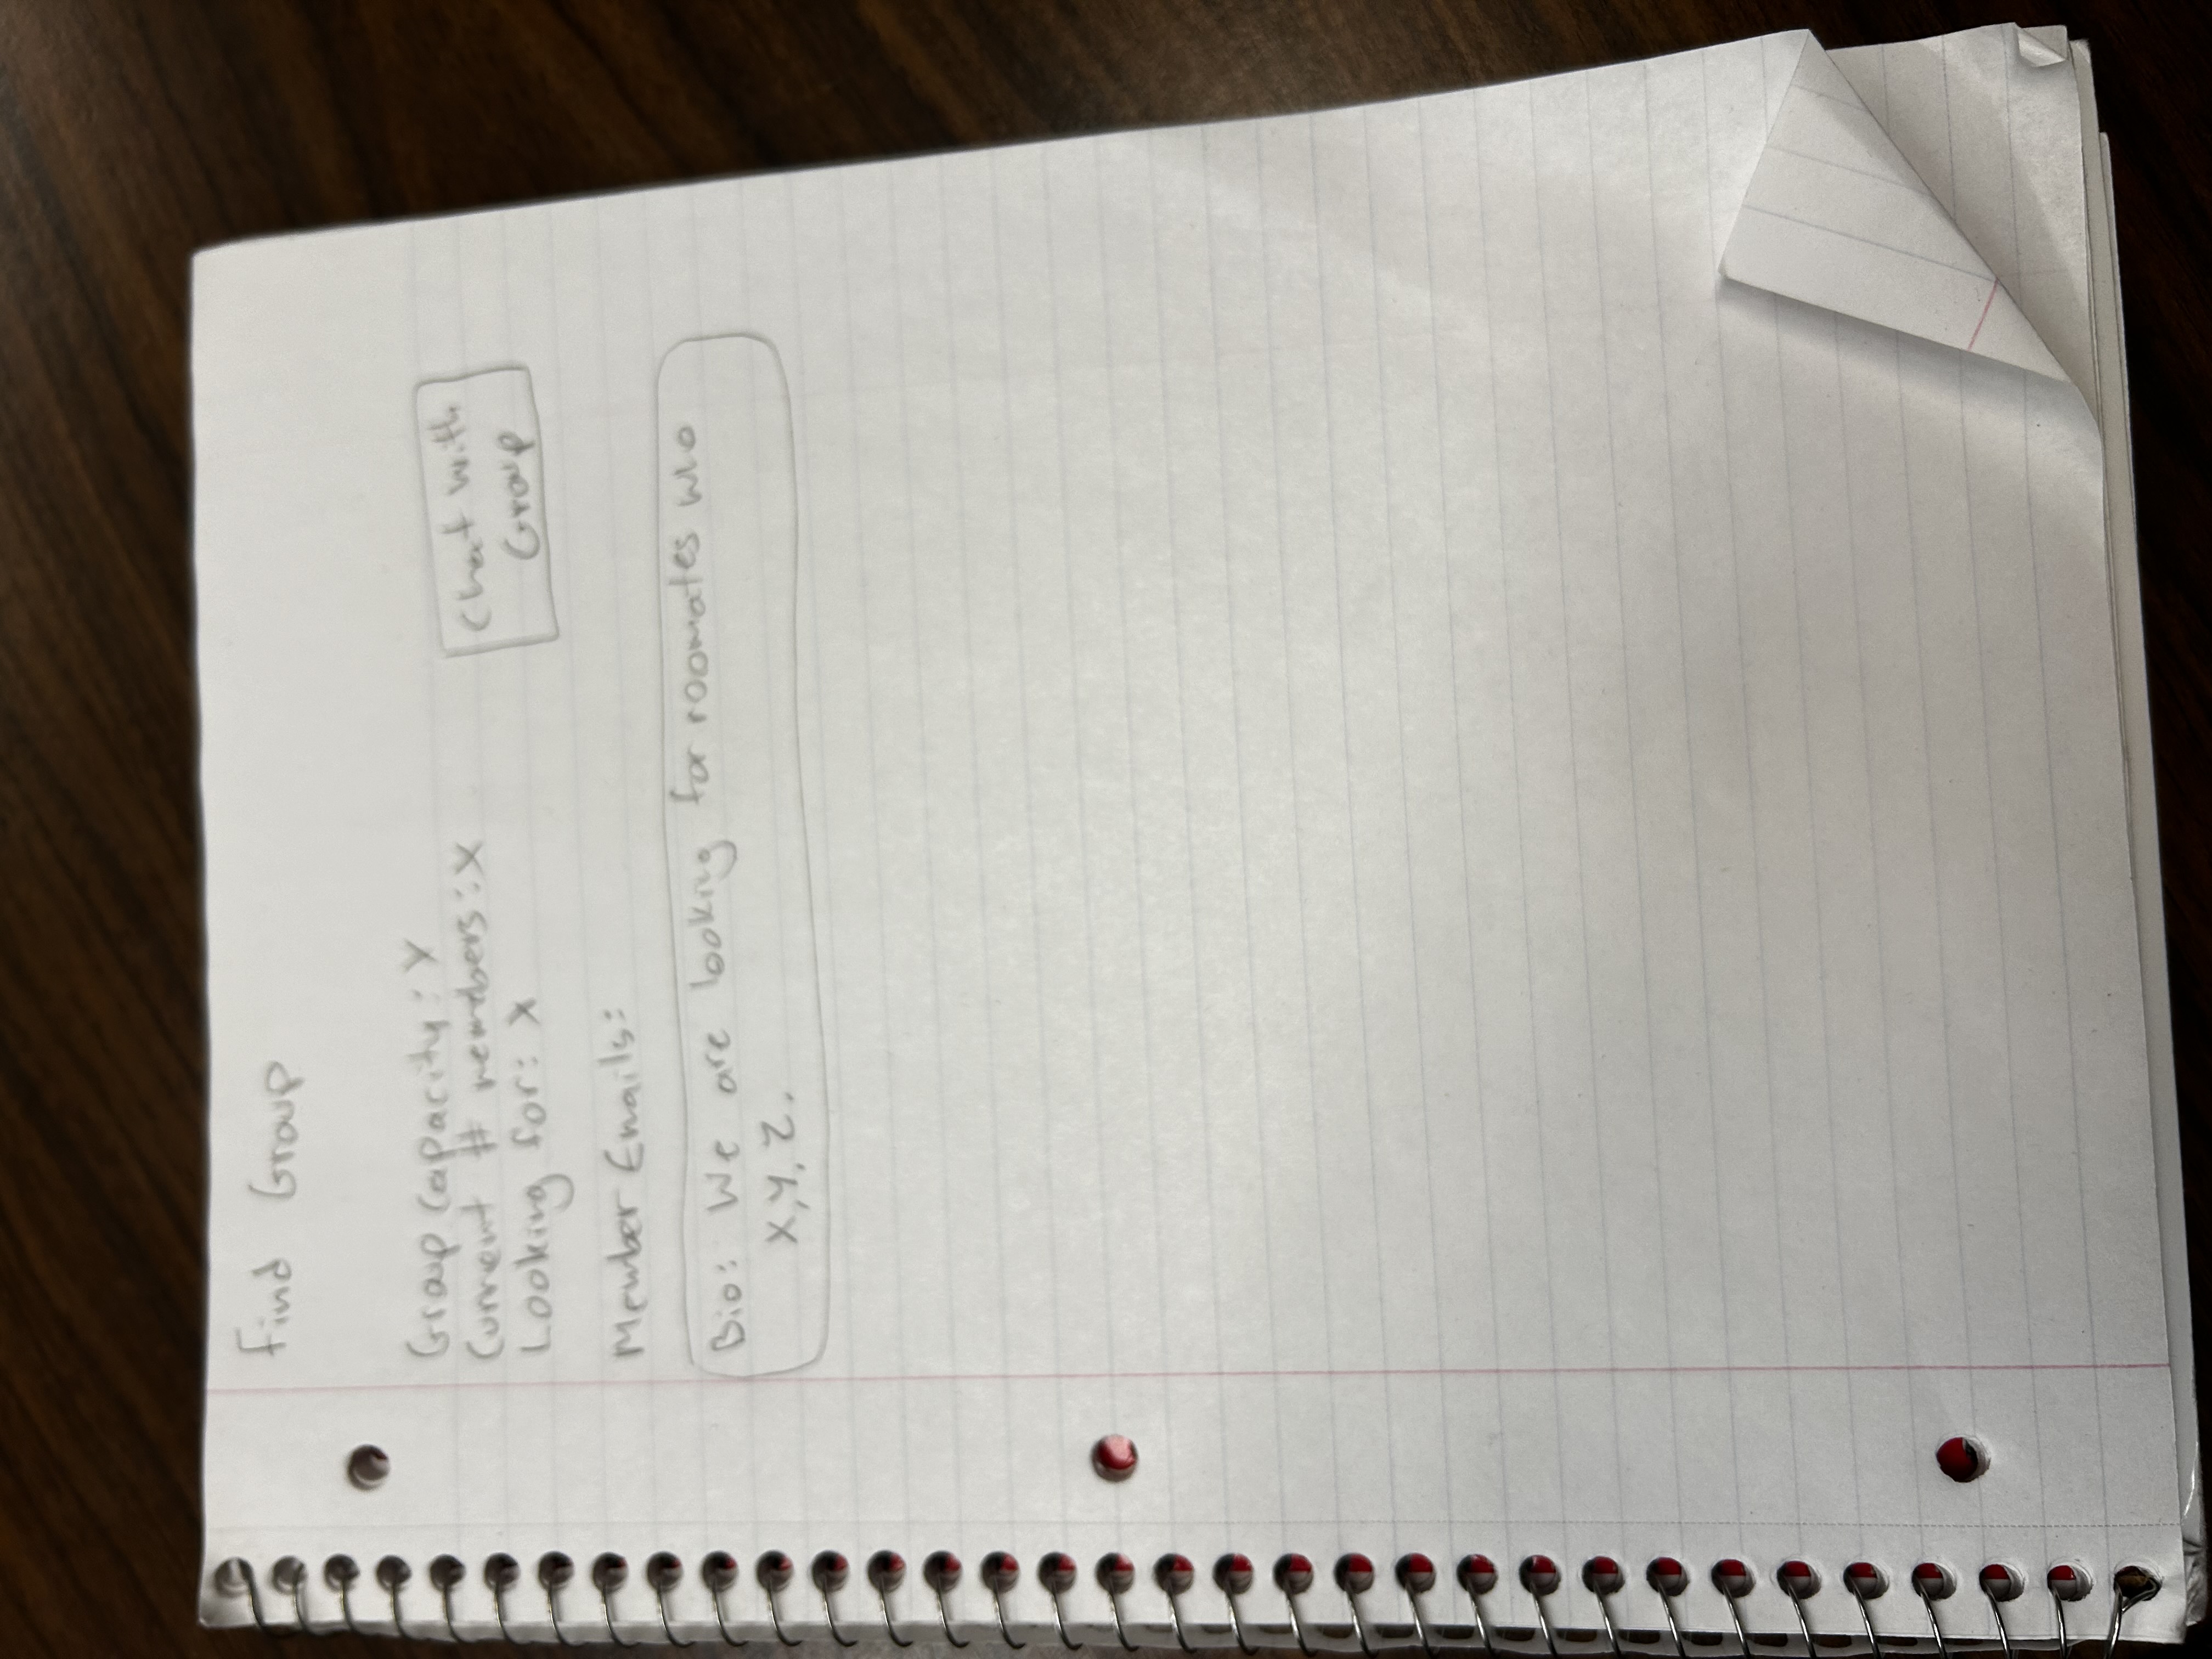 Find Group
Group Capacity: Y
Current # members: X
Looking for: X
Chat with
Group
Member Emails:
Bio: We are looking for roomates who
X, Y, Z.